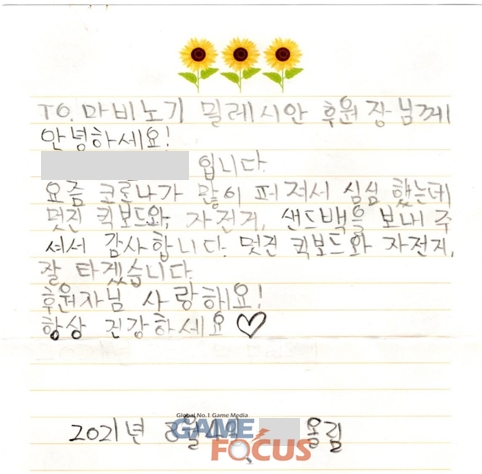 TO. 마비노기 밀레시안 후원장님께
안녕하세요!
입니다.
요즘 코로나가 많이 퍼져서 심심했는데
멋진 킥보드와, 자전거, 샌드백을 보내 주
셔서 감사합니다. 멋진 킥보드와 자전거,
잘 타겠습니다.
후원자님 사랑해요!
항상 건강하세요♡
2021년 월 올림
Global No.1 Game Media
GAME FOCUS